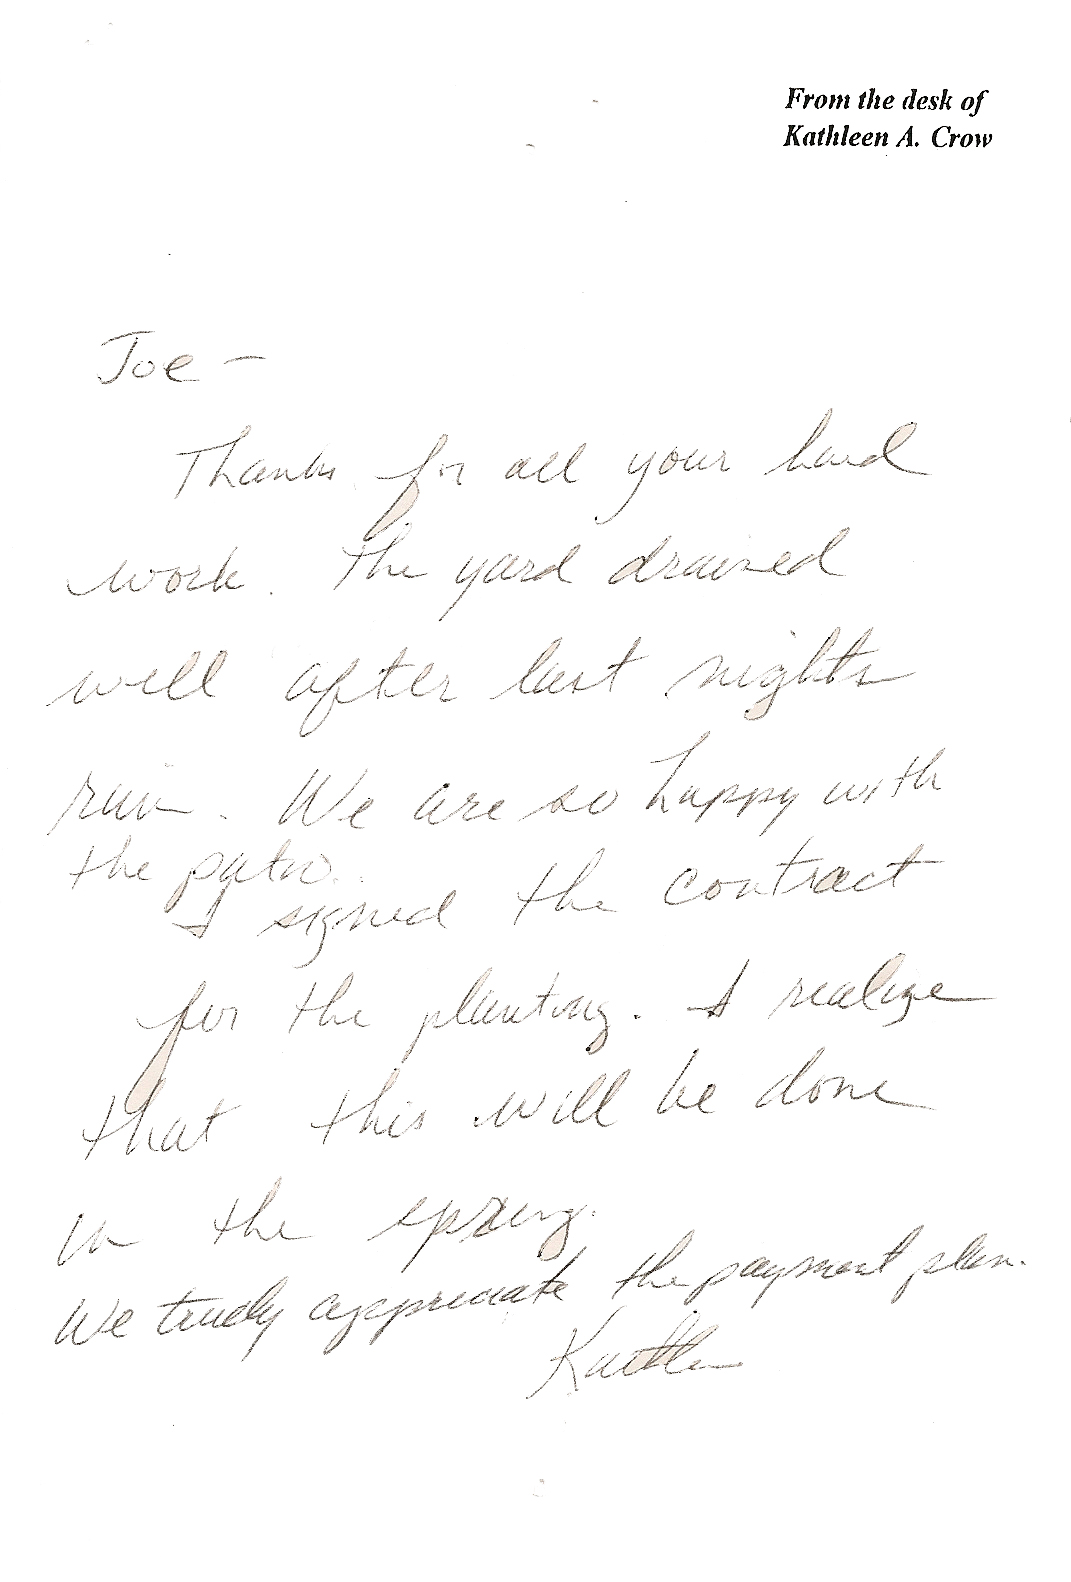 From the desk of
Kathleen A. Crow
Joe -
Thanks for all your hard
work. The yard drained
well after last nights
rain. We are so happy with
the patio.
I signed the contract
for the planting. I realize
that this will be done
in the spring.
We truely appreciate the payment plan.
Kathleen